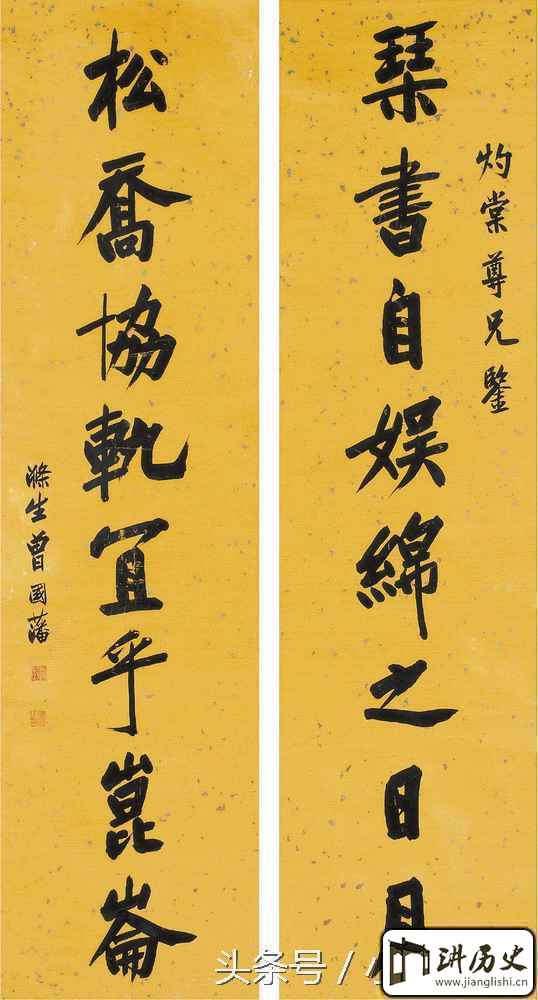 灼棠尊兄鑒
琹書自娱綿之日月
松喬協軌冝乎崑崙
滌生曾國藩
头条号 / 小
讲历史
www.jianglishi.cn